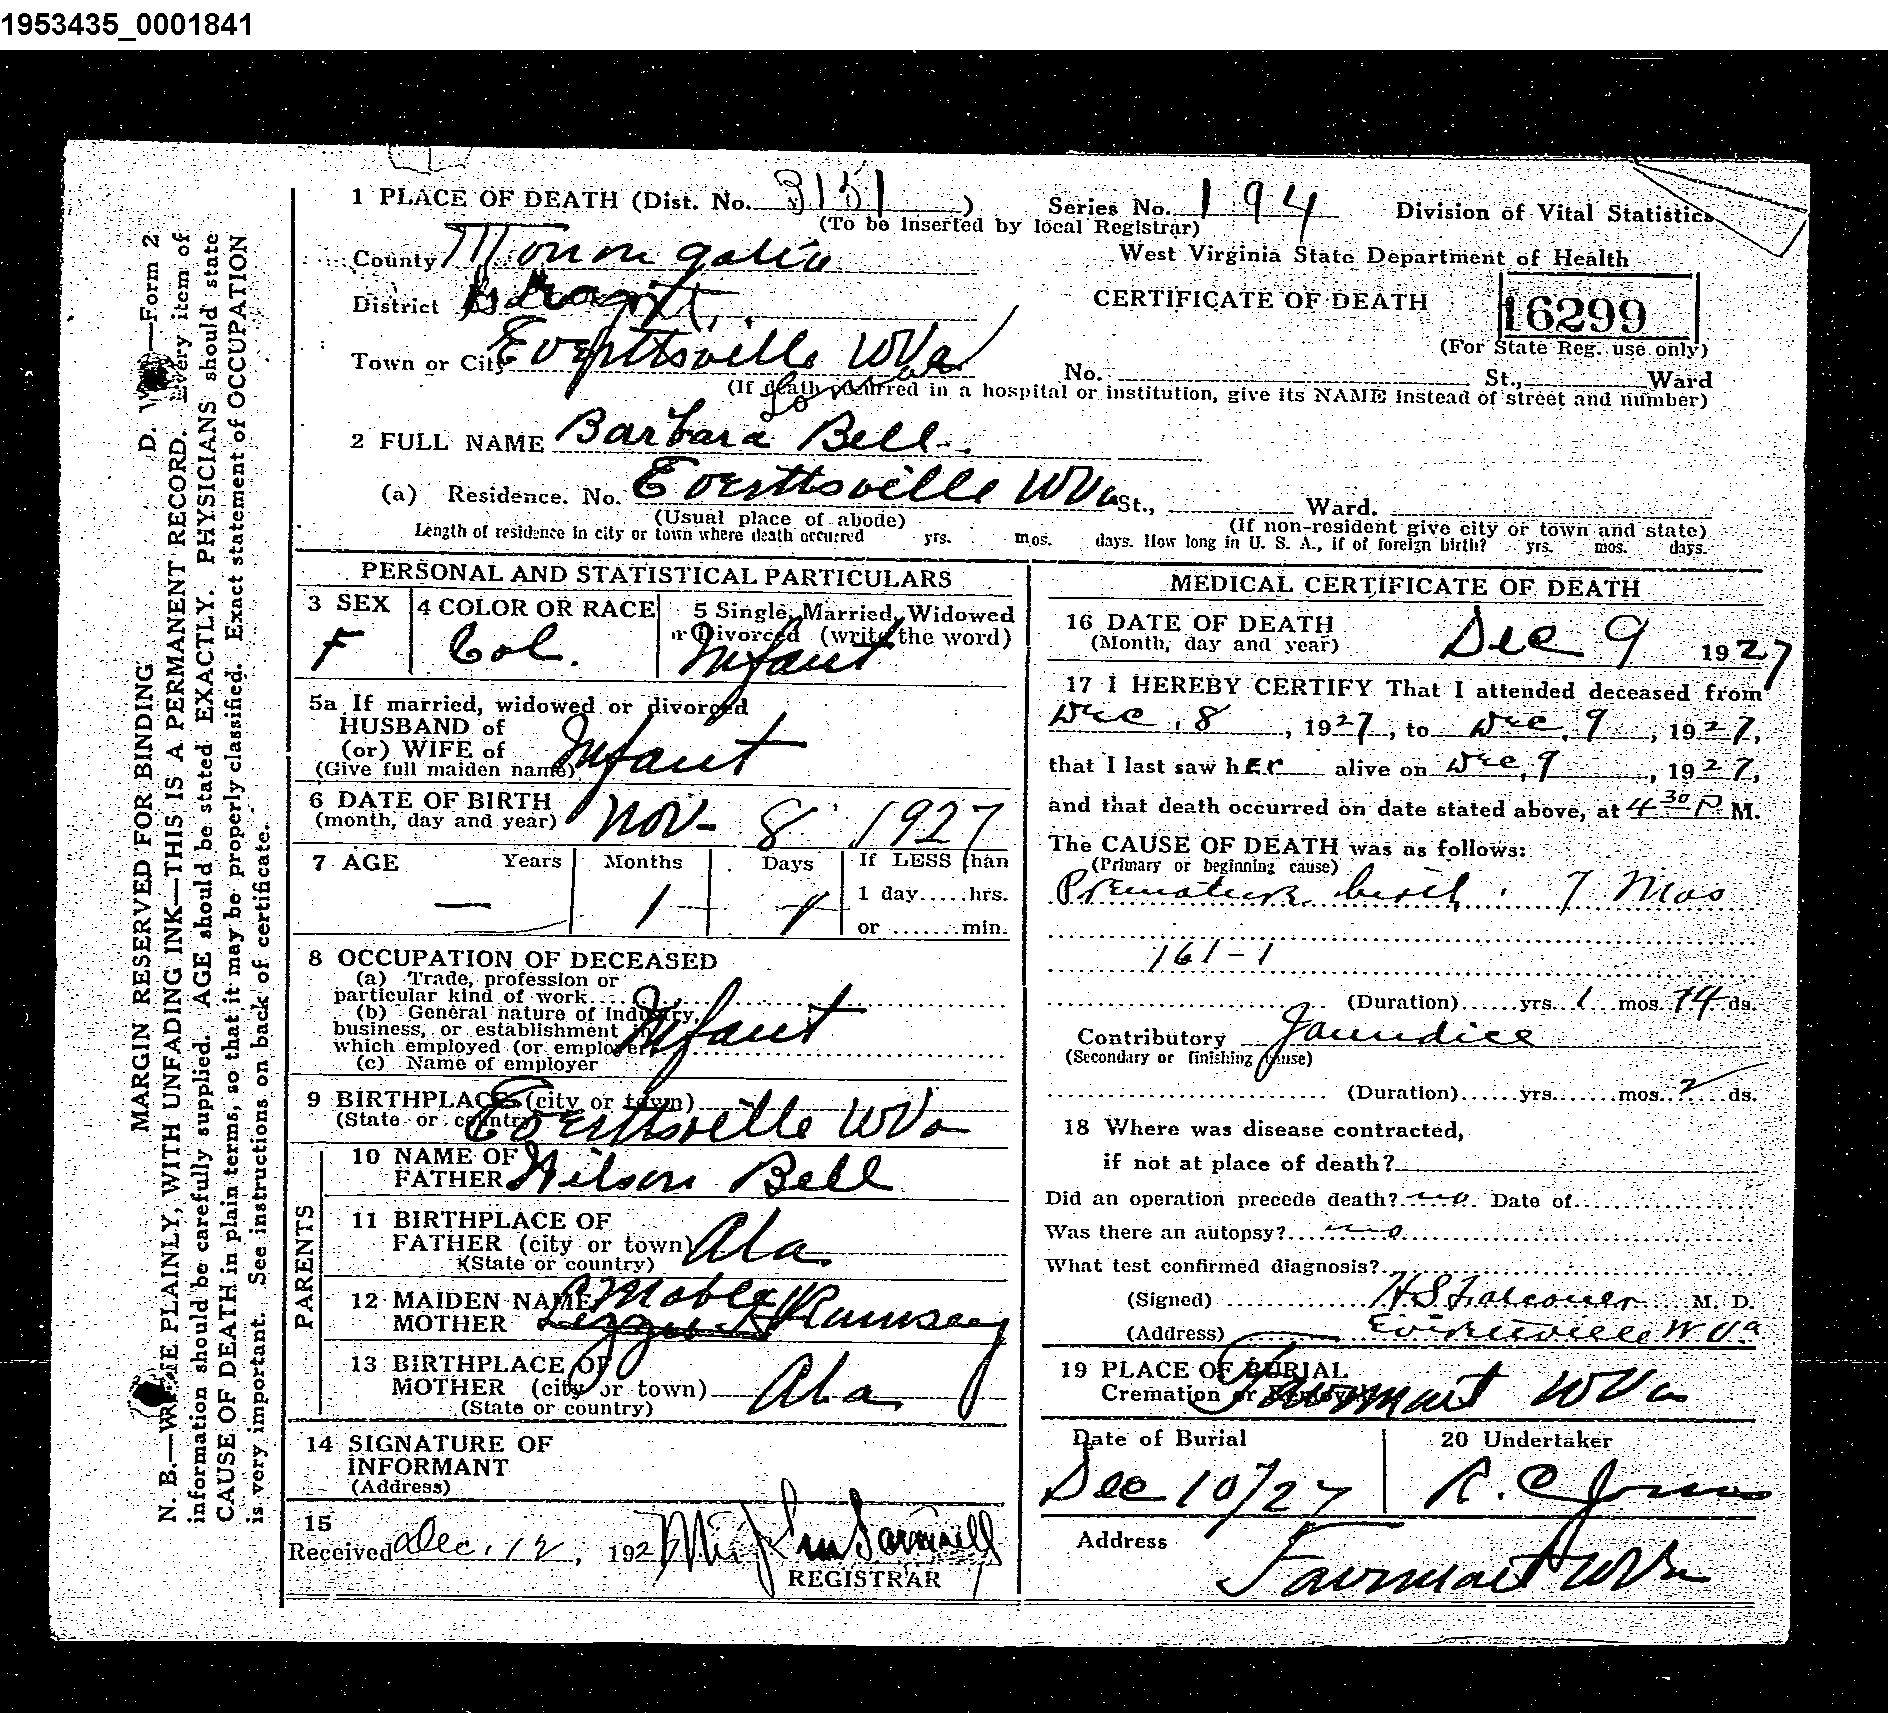 1953435_0001841
1 PLACE OF DEATH (Dist. No. 3151 ) Series No. 194 Division of Vital Statistics
(To be inserted by local Registrar)
County Monongalia West Virginia State Department of Health
District CERTIFICATE OF DEATH 16299
Town or City Everttsville WVa (For State Reg. use only)
No. St., Ward
(If death occurred in a hospital or institution, give its NAME instead of street and number)
2 FULL NAME Barbara Bell
(a) Residence. No. Everttsville WVa St., Ward.
(Usual place of abode) (If non-resident give city or town and state)
Length of residence in city or town where death occurred yrs. mos. days. How long in U. S. A., if of foreign birth? yrs. mos. days.
MARGIN RESERVED FOR BINDING D. —Form 2
N. B.—WRITE PLAINLY, WITH UNFADING INK—THIS IS A PERMANENT RECORD. Every item of
information should be carefully supplied. AGE should be stated EXACTLY. PHYSICIANS should state
CAUSE OF DEATH in plain terms, so that it may be properly classified. Exact statement of OCCUPATION
is very important. See instructions on back of certificate.
PERSONAL AND STATISTICAL PARTICULARS
3 SEX 4 COLOR OR RACE 5 Single, Married, Widowed
or Divorced (write the word)
F Col. Infant
5a If married, widowed or divorced
HUSBAND of
(or) WIFE of Infant
(Give full maiden name)
6 DATE OF BIRTH Nov- 8 1927
(month, day and year)
7 AGE Years Months Days If LESS than
— 1 1 1 day.....hrs.
or .......min.
8 OCCUPATION OF DECEASED
(a) Trade, profession or
particular kind of work
(b) General nature of industry,
business, or establishment in
which employed (or employer) Infant
(c) Name of employer
9 BIRTHPLACE (city or town)
(State or country) Everttsville WVa
PARENTS
10 NAME OF
FATHER Wilson Bell
11 BIRTHPLACE OF
FATHER (city or town) Ala
(State or country)
12 MAIDEN NAME Mable
MOTHER Lizzie Ramsey
13 BIRTHPLACE OF
MOTHER (city or town) Ala
(State or country)
14 SIGNATURE OF
INFORMANT
(Address)
15
Received Dec. 12, 1927
REGISTRAR
MEDICAL CERTIFICATE OF DEATH
16 DATE OF DEATH Dec 9 1927
(Month, day and year)
17 I HEREBY CERTIFY That I attended deceased from
Dec. 8, 1927, to Dec. 9, 1927,
that I last saw her alive on Dec. 9, 1927,
and that death occurred on date stated above, at 4 30 P. M.
The CAUSE OF DEATH was as follows:
(Primary or beginning cause)
Premature birth. 7 Mos
161-1
(Duration)......yrs. 1 mos. ds.
Contributory Jaundice
(Secondary or finishing cause)
(Duration)......yrs.......mos. 2 ds.
18 Where was disease contracted,
if not at place of death?
Did an operation precede death? no Date of
Was there an autopsy? no
What test confirmed diagnosis?
(Signed) H S Falconer M. D.
(Address) Everttsville W Va
19 PLACE OF BURIAL
Cremation or Removal Fairmont WVa
Date of Burial 20 Undertaker
Dec 10/27 R. C. Jones
Address
Fairmont WVa